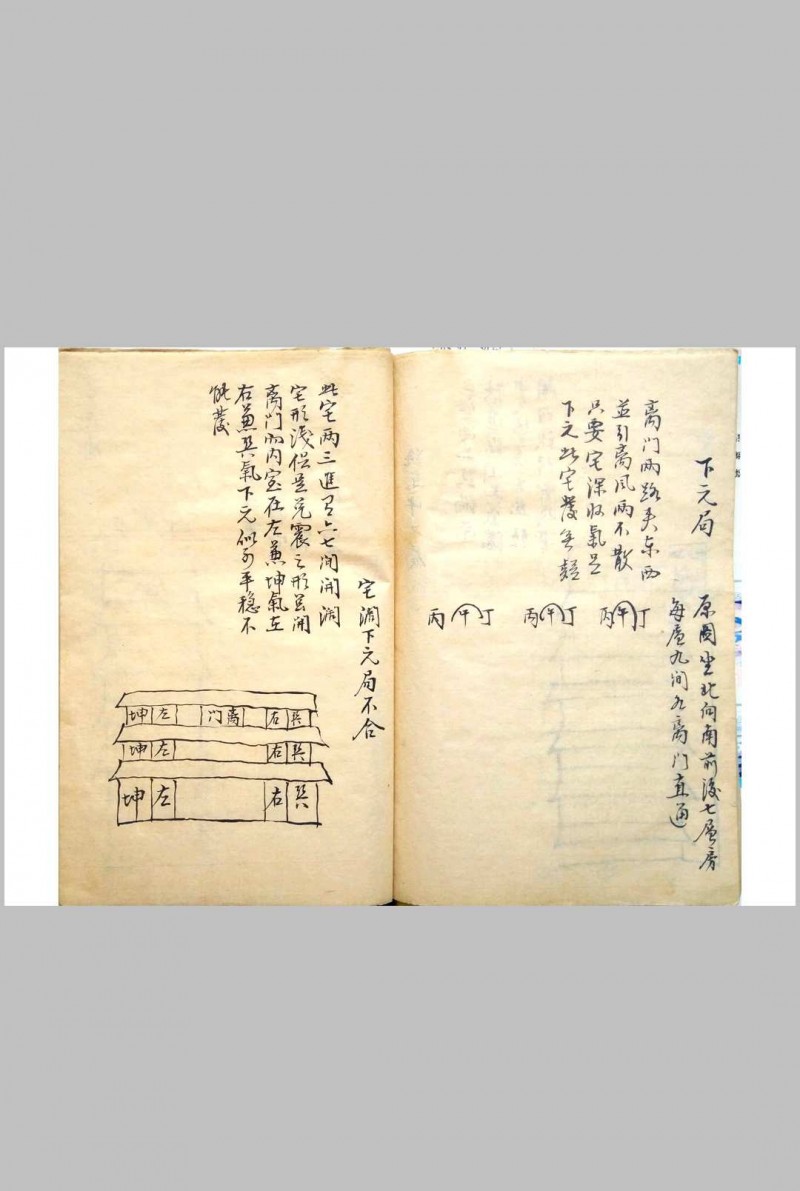 下元局
离门两路夹东西
并引离风两不散
只要宅深收气足
下元此宅发无疑
原图坐北向南前后七层房
每层九间九离门直通
丙午丁
丙午丁
丙午丁
宅阔下元局不合
此宅两三进有六七间开阔
宅形浅但是兑震之形虽开
离门而内室在左兼坤气在
右兼巽氣下元似可平稳不
能发
坤 左 门离 右 巽
坤 左 右 巽
坤 左 右 巽